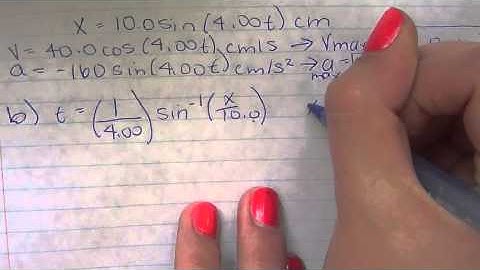 x = 10.0 sin(4.00t) cm
v = 40.0 cos(4.00t) cm/s → Vma
a = -160 sin(4.00t) cm/s² → a max =
b) t = (1/4.00) sin⁻¹(x/10.0)